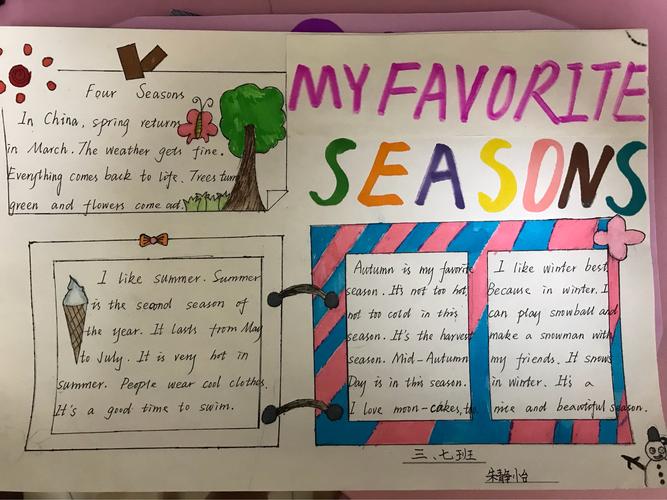 MY FAVORITE
SEASONS
Four Seasons
In China, spring returns
in March. The weather gets fine.
Everything comes back to life. Trees turn
green and flowers come out.
I like summer. Summer
is the second season of
the year. It lasts from May
to July. It is very hot in
summer. People wear cool clothes.
It's a good time to swim.
Autumn is my favorite
season. It's not too hot,
not too cold in this
season. It's the harvest
season. Mid-Autumn
Day is in this season.
I love moon-cakes, too.
I like winter best,
Because in winter. I
can play snowball and
make a snowman with
my friends. It snows
in winter. It's a
nice and beautiful season.
三、七班